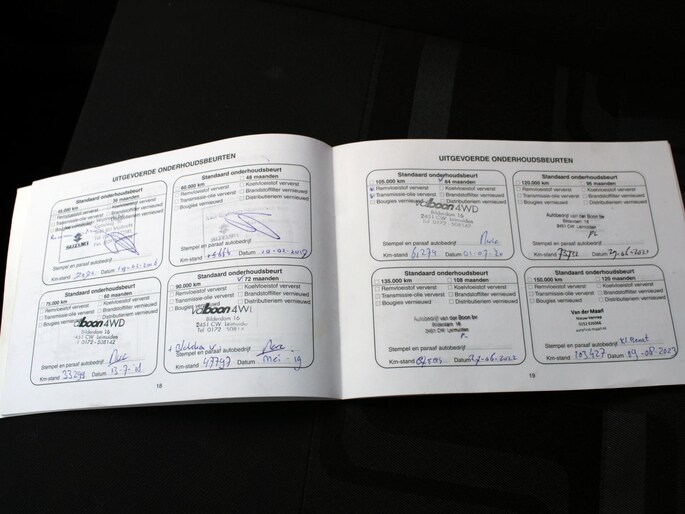 UITGEVOERDE ONDERHOUDSBEURTEN
Standaard onderhoudsbeurt
45.000 km 36 maanden
Remvloeistof ververst Koelvloeistof ververst
Transmissie-olie ververst Brandstoffilter vernieuwd
Bougies vernieuwd Distributieriem vernieuwd
SUZUKI
Stempel en paraaf autobedrijf
Km-stand Datum
Standaard onderhoudsbeurt
60.000 km 48 maanden
Remvloeistof ververst Koelvloeistof ververst
Transmissie-olie ververst Brandstoffilter vernieuwd
Bougies vernieuwd Distributieriem vernieuwd
Stempel en paraaf autobedrijf
Km-stand Datum 10-02-2017
Standaard onderhoudsbeurt
75.000 km 60 maanden
Remvloeistof ververst Koelvloeistof ververst
Transmissie-olie ververst Brandstoffilter vernieuwd
Bougies vernieuwd Distributieriem vernieuwd
valboon 4WD
Bilderdam 16
2451 CW Leimuiden
Stempel en paraaf autobedrijf
Km-stand 33299 Datum 13-7-18
Standaard onderhoudsbeurt
90.000 km 72 maanden
Remvloeistof ververst Koelvloeistof ververst
Transmissie-olie ververst Brandstoffilter vernieuwd
Bougies vernieuwd Distributieriem vernieuwd
valboon 4WD
Bilderdam 16
2451 CW Leimuiden
Stempel en paraaf autobedrijf
Km-stand 47797 Datum mei-19
18
UITGEVOERDE ONDERHOUDSBEURTEN
Standaard onderhoudsbeurt
105.000 km 84 maanden
Remvloeistof ververst Koelvloeistof ververst
Transmissie-olie ververst Brandstoffilter vernieuwd
Bougies vernieuwd Distributieriem vernieuwd
valboon 4WD
Bilderdam 16
2451 CW Leimuiden
Stempel en paraaf autobedrijf
Km-stand Datum 01-07-20
Standaard onderhoudsbeurt
120.000 km 96 maanden
Remvloeistof ververst Koelvloeistof ververst
Transmissie-olie ververst Brandstoffilter vernieuwd
Bougies vernieuwd Distributieriem vernieuwd
Autobedrijf van der Boon
Bilderdam 16
2451 CW Leimuiden
Stempel en paraaf autobedrijf
Km-stand Datum 29-06-2021
Standaard onderhoudsbeurt
135.000 km 108 maanden
Remvloeistof ververst Koelvloeistof ververst
Transmissie-olie ververst Brandstoffilter vernieuwd
Bougies vernieuwd Distributieriem vernieuwd
Autobedrijf van der Boon
Bilderdam 16
2451 CW Leimuiden
Stempel en paraaf autobedrijf
Km-stand Datum
Standaard onderhoudsbeurt
150.000 km 120 maanden
Remvloeistof ververst Koelvloeistof ververst
Transmissie-olie ververst Brandstoffilter vernieuwd
Bougies vernieuwd Distributieriem vernieuwd
Van der Maarl
Stempel en paraaf autobedrijf
Km-stand 103427 Datum 09-08-2023
19